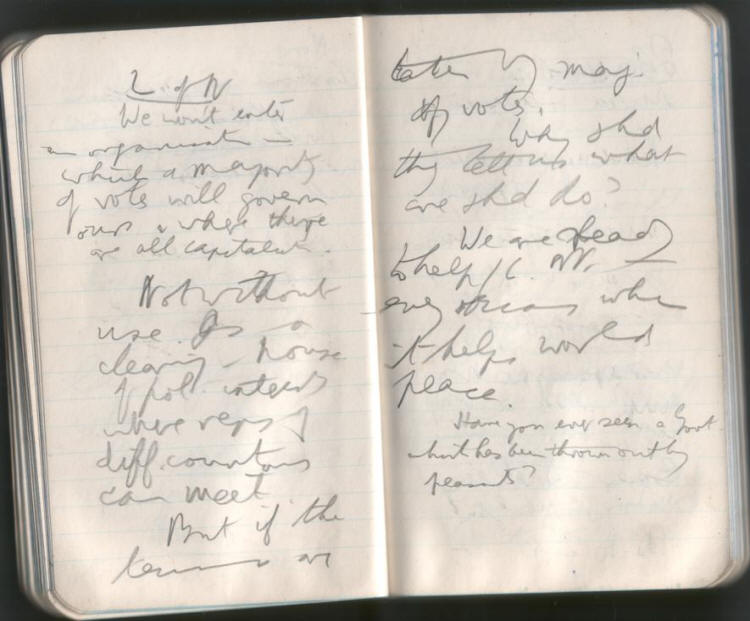 L. of N
We won't enter
an organisation in
which a majority
of votes will govern
ours & where there
are all capitalist.
Not without
use. Is a
clearing-house
of pol. interests
where reps of
diff. countries
can meet.
But if the
are
taken by maj.
of votes.
Why shd
they tell us what
we shd do?
We are ready
to help L. N.
every
when
it helps world
peace.
Have you ever seen a Govt
which has been thrown out by
peasants?